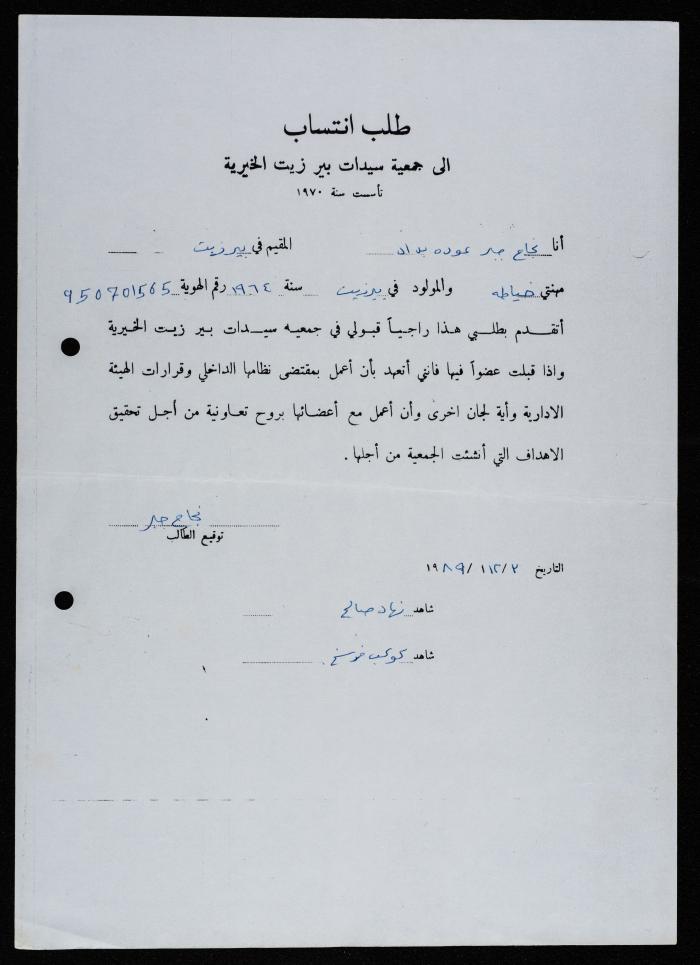 طلب انتساب
الى جمعية سيدات بير زيت الخيرية
تأسست سنة ١٩٧٠
أنا نجاح جبر عوده المقيم في بيرزيت
مهنتي خياطه والمولود في بيرزيت سنة ١٩٦٤ رقم الهوية 950701565
أتقدم بطلبي هذا راجياً قبولي في جمعيه سيدات بير زيت الخيرية
واذا قبلت عضواً فيها فانني أتعهد بأن أعمل بمقتضى نظامها الداخلي وقرارات الهيئة
الادارية وأية لجان اخرى وأن أعمل مع أعضائها بروح تعاونية من أجل تحقيق
الاهداف التي أنشئت الجمعية من أجلها .
نجاح جبر
توقيع الطالب
التاريخ ٢/١٢/١٩٨٩
شاهد نهاد صالح
شاهد كوكب